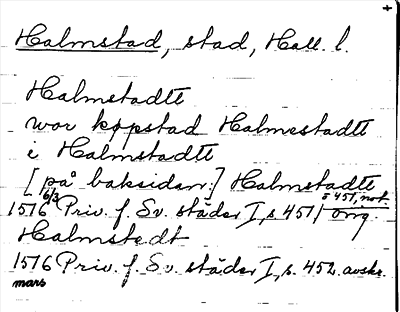 +
Halmstad, stad, Hall. l.
Halmstadtt
wor køpstad Halmestadtt
i Halmstadtt
[på baksidan:] Halmstadtt
6/3 s 451, not.
1576 Priv. f. Sv. städer I, s. 451/ orig.
Halmstedt
1576 Priv. f. Sv. städer I, s. 452. avskr.
mars